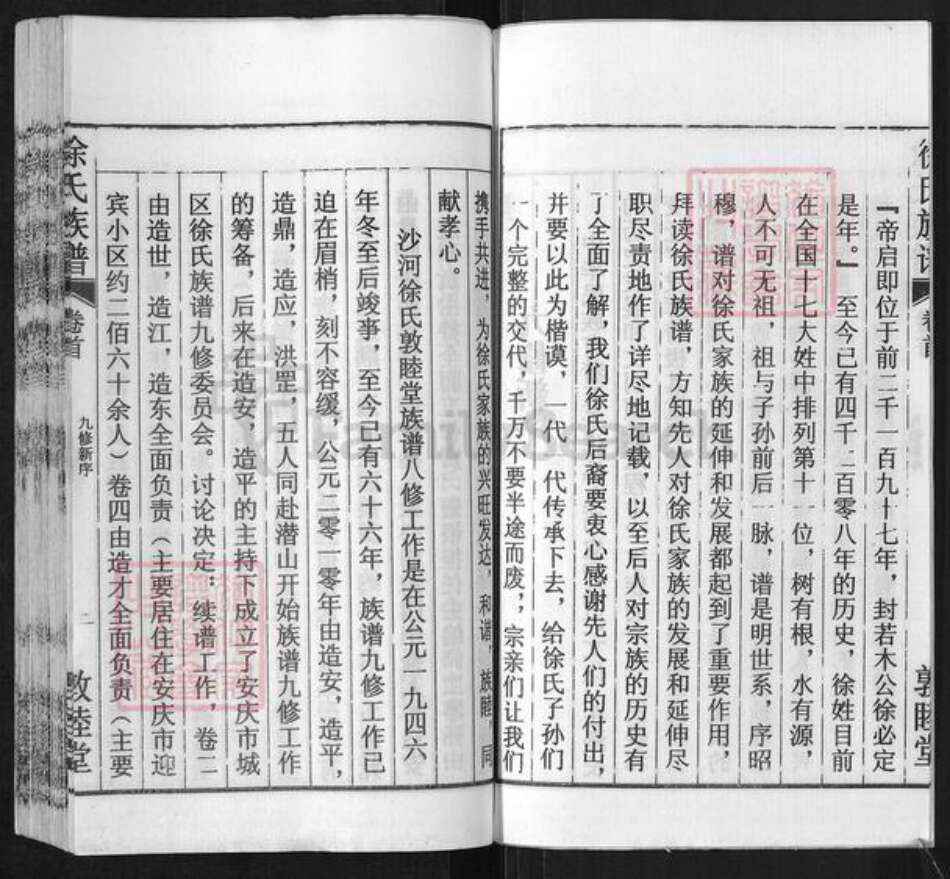 徐氏族谱
卷首
敦睦堂
『帝启即位于前二千一百九十七年，封若木公徐必定
是年。』 至今已有四千二百零八年的历史，徐姓目前
在全国十七大姓中排列第十一位，树有根，水有源，
人不可无祖，祖与子孙前后一脉，谱是明世系，序昭
穆，谱对徐氏家族的延伸和发展都起到了重要作用，
拜读徐氏族谱，方知先人对徐氏家族的发展和延伸尽
职尽责地作了详尽地记载，以至后人对宗族的历史有
了全面了解，我们徐氏后裔要衷心感谢先人们的付出，
并要以此为楷谟，一代一代传承下去，给徐氏子孙们
一个完整的交代，千万不要半途而废，，宗亲们让我们
携手共进，为徐氏家族的兴旺发达，和谐，族睦，同
献孝心。
沙河徐氏敦睦堂族谱八修工作是在公元一九四六
年冬至后竣事，至今已有六十六年，族谱九修工作已
迫在眉梢，刻不容缓，公元二零一零年由造安，造平，
造鼎，造应，洪罡，五人同赴潜山开始族谱九修工作
的筹备，后来在造安，造平的主持下成立了安庆市城
区徐氏族谱九修委员会。讨论决定：续谱工作，卷二
由造世，造江，造东全面负责（主要居住在安庆市迎
宾小区约二佰六十余人）卷四由造才全面负责（主要
徐氏族谱
卷首
九修新序
二
敦睦堂